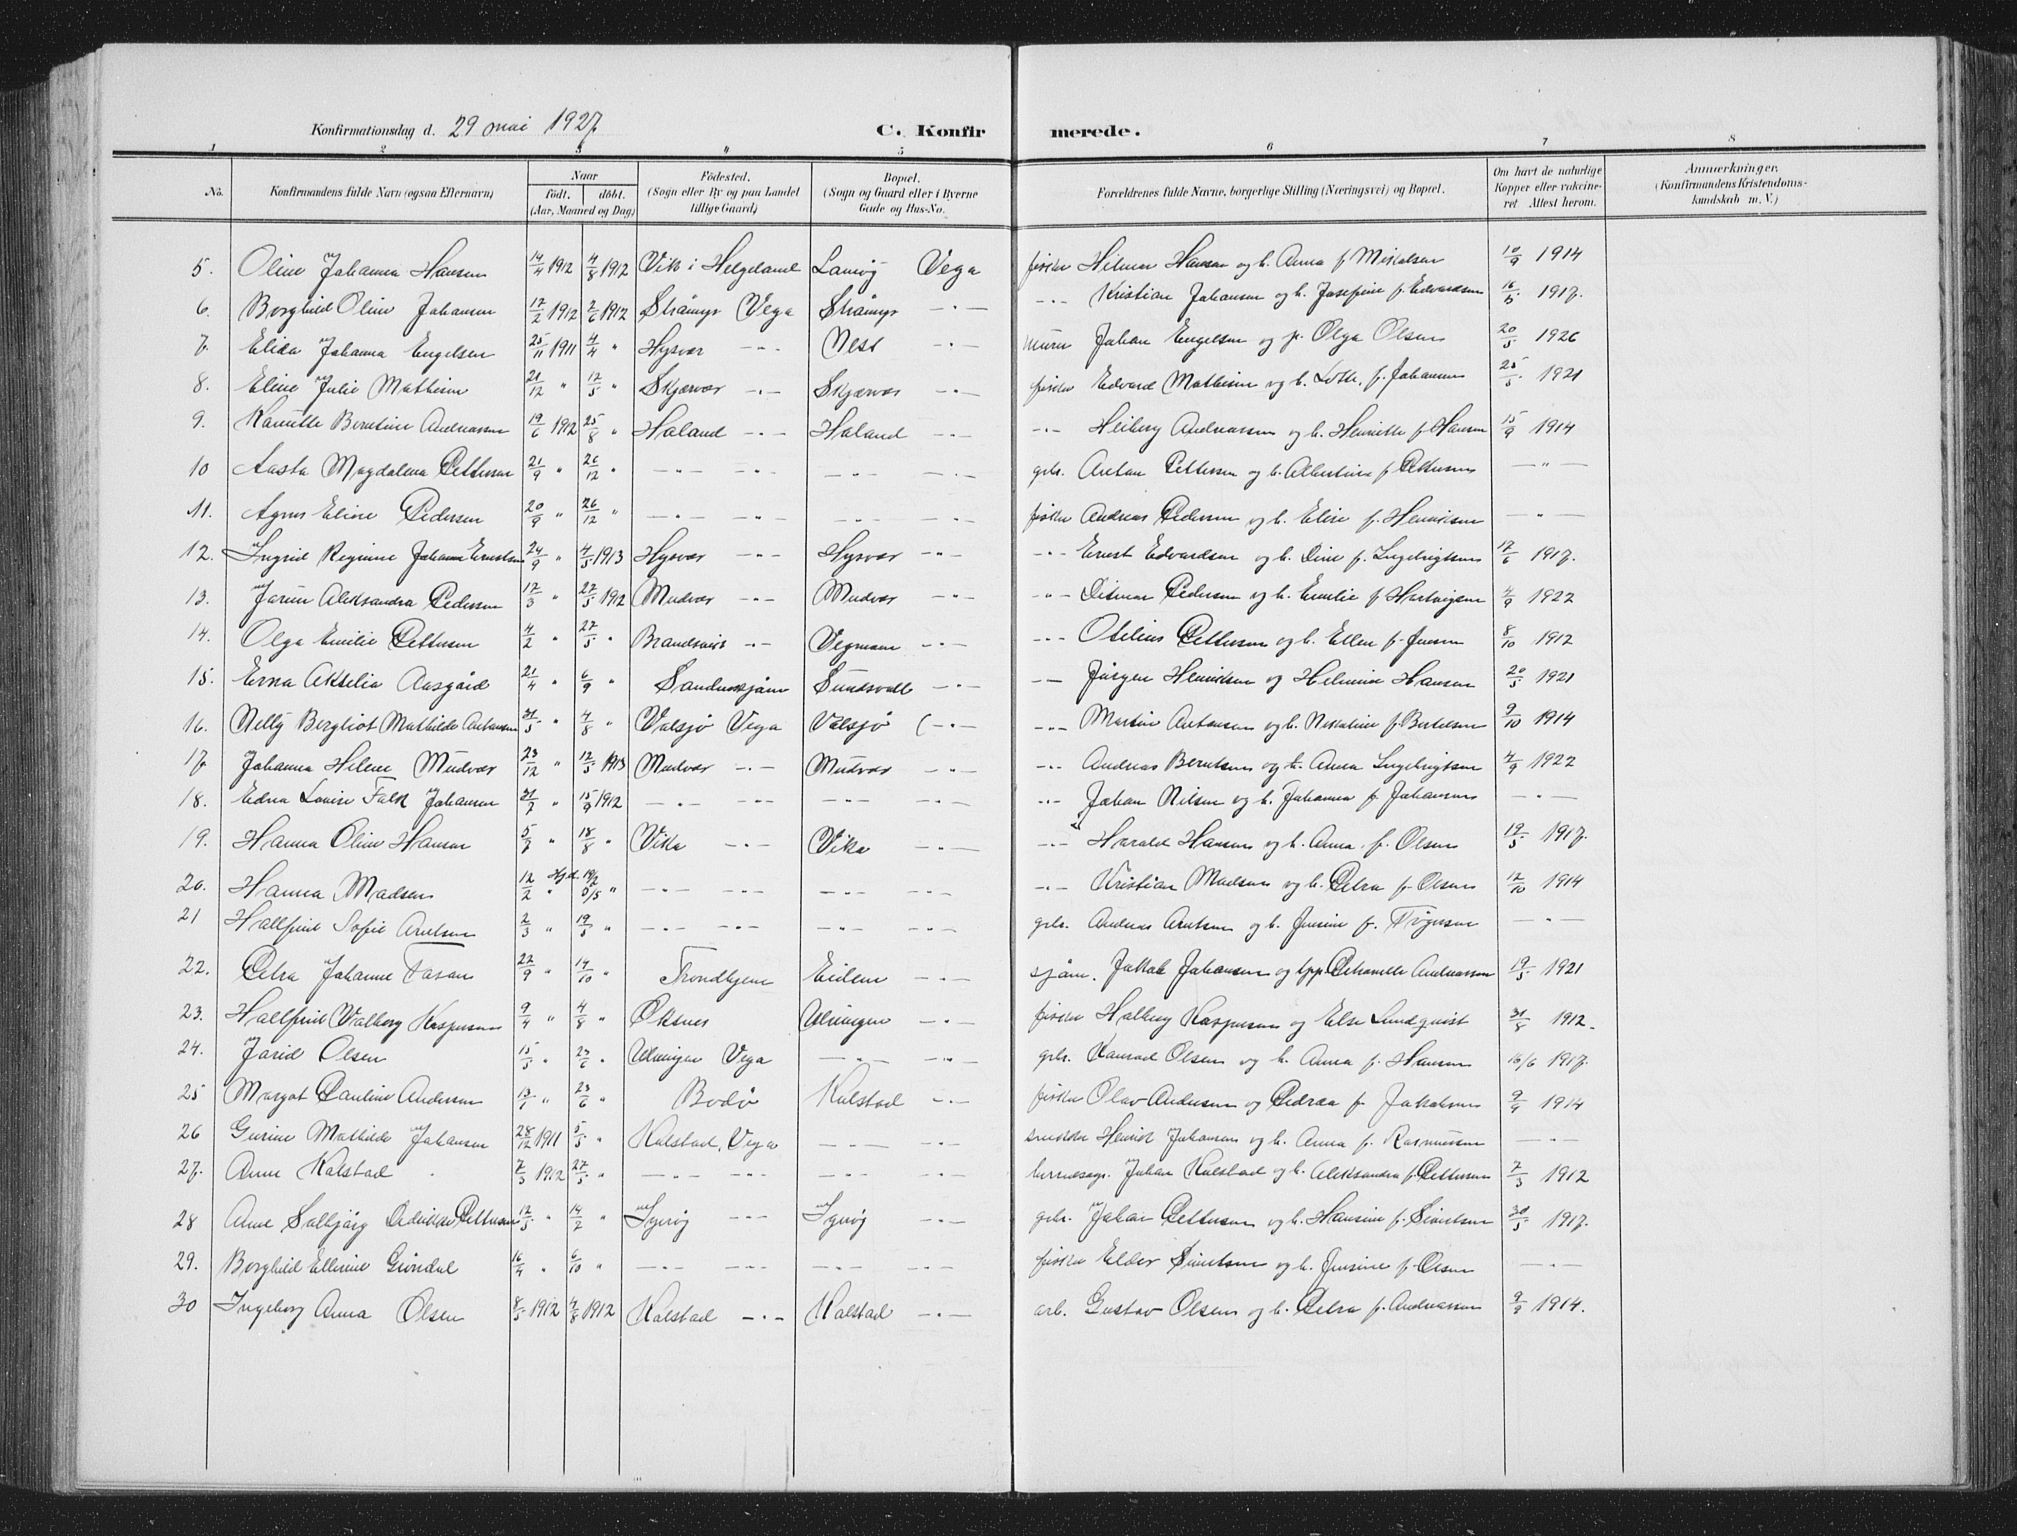 Konfirmationsdag d. 29 mai 1927 C. Konfirmerede.
1 2 3 4 5 6 7 8
No. Konfirmandens fulde Navn (ogsaa Efternavn) Naar født. døbt. (Aar, Maaned og Dag) Fødested. (Sogn eller By og paa Landet tillige Gaard) Bopæl. (Sogn og Gaard eller i Byerne Gade og Hus-No. Forældrenes fulde Navne, borgerlige Stilling (Næringsvei) og Bopæl. Om havt de naturlige Kopper eller vakcineret Attest herom. Anmærkninger. (Konfirmandens Kristendomskundskab m. V.)
5. Oline Johanna Hansen 14/4 1912 4/8 1912 Vik i Helgeland Vega fisker Hilmar Hansen og h. Anna f. Mikalsen 10/9 1914
6. Borghild Oline Johansen 17/2 1912 2/6 1912 Vega -"- -"- Kristian Johansen og h. Josefine f. Edvardsen 1917.
7. Elida Johanna Engelsen 25/11 1911 4/4 " Hysvær -"- Nest -"- murer Johan Engelsen og p. Olga Olsen 20/5 1926
8. Eline Julie Mathisen 21/12 " 12/5 " Skjærvær -"- Skjærvær -"- fisker Edvard Mathisen og h. Lotte f. Johansen 25/5 1921
9. Berntine Andreassen 19/6 1912 25/8 " Holand -"- Holand -"- -"- Heiberg Andreassen og h. Henriette f. Hansen 15/9 1914
10 Aasta Magdalena Pettersen 21/9 " 26/12 " -"- -"- -"- -"- grbr. Anton Pettersen og h. Albertine f. Pettersen -"-
11. Agnes Eline Pedersen 20/9 " 26/12 " -"- -"- -"- -"- fisker Andreas Pedersen og h. Elise f. Henriksen -"-
12. Ingrid Regine Johanna Ernstsen 24/9 " 4/5 1913 Hysvær -"- Hysvær -"- -"- Ernst Edvardsen og h. Dine f. Ingebrigtsen 17/6 1917.
13. Aleksandra Pedersen 17/3 " 27/5 1912 Mudvær -"- Mudvær -"- -"- Ditmar Pedersen og h. Emilie f. Hartvigsen 4/9 1922
14. Olga Emilie Pettersen 4/2 " 27/5 " -"- -"- -"- Otelius Pettersen og h. Ellen f. Jensen 8/10 1912
15. Erna Akselia Aasgård 21/4 " 6/9 " Sandnessjøen Sundsvoll -"- -"- Jørgen Henriksen og Helmine Hansen 20/5 1921
16. Nelly Bergliot Mathilde Antonsen 31/5 " 4/8 " Valsjø Vega Valsjø (-"- -"- Martin Antonsen og h. f. Bertelsen 9/10 1914
17. Johanna Helene Mudvær 23/12 " 12/5 1913 Mudvær -"- Mudvær -"- -"- Andreas Berntsen og h. Anna Ingebrigtsen 4/9 1922
18. Edna Lovise Falk Johansen 31/7 " 15/9 1912 -"- -"- -"- -"- -"- Johan Nilsen og h. Johanna f. Johansen -"-
19. Hanna Oline Hansen 5/7 " 18/8 " Vika -"- Vika -"- -"- Harald Hansen og h. Anna f. Olsen 19/5 1917.
20. Hanna Madsen 12/2 " Hjd. 19/2 5/5 " -"- -"- -"- -"- -"- Kristian Madsen og h. Petra f. Olsen 12/10 1914
21 Hallfrid Sofie Arntsen 2/3 " 19/5 " -"- -"- -"- -"- grbr. Andreas Arntsen og h. Jensine f. -"-
22. Petra Johanne Fasan 22/9 " 14/10 " Trondhjem Eidem -"- sjøm. Jakob Johansen og Petronelle Andreassen 19/5 1921
23. Hallfrid Valborg Kaspersen 9/4 " 4/8 " Øksnes Ulvingen -"- fisker Halberg Kaspersen og Else Lundqvist 31/8 1912.
24. Jorid Olsen 15/5 " 23/6 " Ulvingen Vega -"- -"- grbr. Konrad Olsen og h. Anna f. Hansen 16/6 1917.
25 Margot Pauline Andersen 13/1 " 23/6 " Bodø Kalstad -"- fisker Olav Andersen og Pedrea f. Jakobsen 9/9 1914
26 Gurine Mathilde Johansen 28/12 1911 5/5 " Kalstad, Vega -"- -"- snekker Henrik Johansen og h. Anna f. Rasmussen -"-
27. Anne Kalstad 7/3 1912 27/5 " -"- -"- -"- -"- herredsagr. Johan Kalstad og h. Aleksandra f. Pettersen 7/3 1912
28 Anne Solbjørg Pettersen 12/5 " 14/2 " Igerøy -"- Igerøy -"- grbr. Johan Pettersen og h. Hansine f. Sivertsen 30/5 1917.
29. Borghild Ellinie Grindal 16/4 " 6/10 " -"- -"- -"- -"- fisker Sivertsen og h. Jensine f. Olsen -"-
30 Ingeborg Anna Olsen 8/5 1912 4/8 1912 Kalstad -"- Kalstad -"- arb. Gustav Olsen og h. Petra f. Andreassen 9/9 1914.